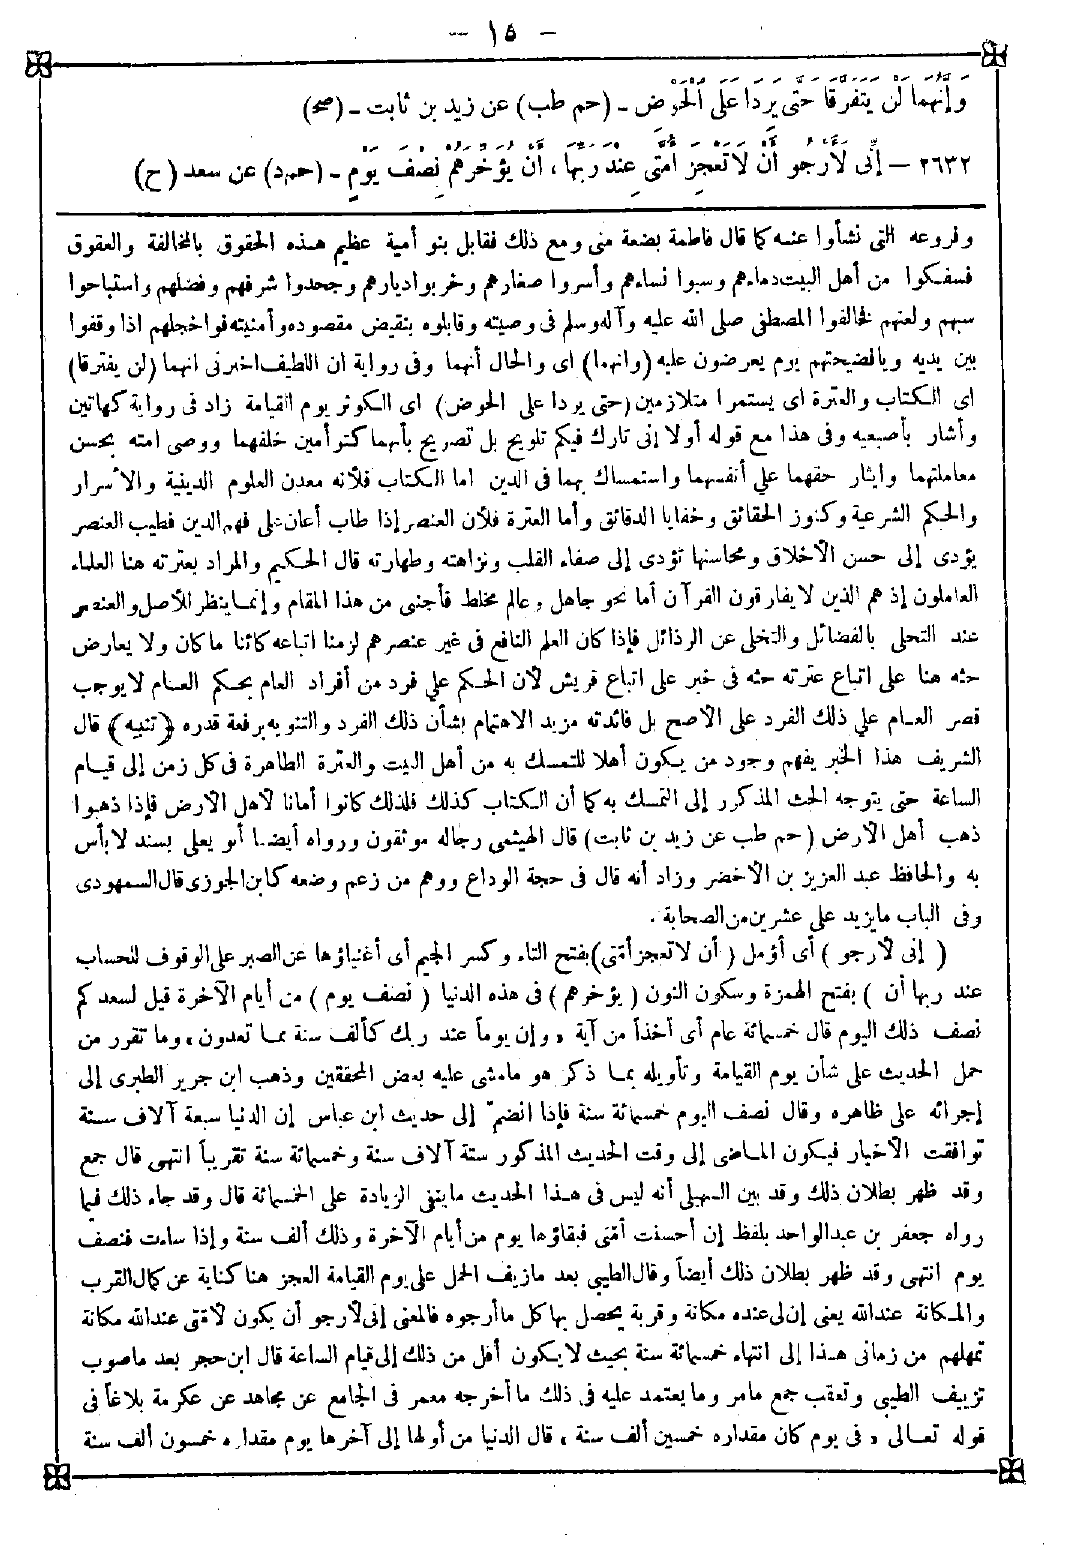 — ١٥ —
وَإِنَّهُمَا لَنْ يَتَفَرَّقَا حَتَّى يَرِدَا عَلَى الْحَوْضِ ـ (حم طب) عن زيد بن ثابت ـ (صح)
٢٦٣٢ — إِنِّى لَأَرْجُو أَنْ لَا تَعْجِزَ أُمَّتِى عِنْدَ رَبِّهَا، أَنْ يُؤَخِّرَهُمْ نِصْفَ يَوْمٍ ـ (حم د) عن سعد (ح)
وفروعه التى نشأوا عنه كما قال فاطمة بضعة منى ومع ذلك فقابل بنو أمية عظيم هذه الحقوق بالمخالفة والعقوق
فسفكوا من أهل البيت دماءهم وسبوا نساءهم وأسروا صغارهم وخربوا ديارهم وجحدوا شرفهم وفضلهم واستباحوا
سبهم ولعنهم فخالفوا المصطفى صلى الله عليه وآله وسلم فى وصيته وقابلوه بنقيض مقصوده وأمنيته فواخجلهم اذا وقفوا
بين يديه ويافضيحتهم يوم يعرضون عليه (وانهما) اى والحال أنهما وفى رواية ان اللطيف اخبرنى انهما (لن يفترقا)
اى الكتاب والعترة اى يستمرا متلازمين (حتى يردا على الحوض) اى الكوثر يوم القيامة زاد فى رواية كهاتين
وأشار بأصبعيه وفى هذا مع قوله أولا إنى تارك فيكم تلويح بل تصريح بأنهما كتوأمين خلفهما ووصى امته بحسن
معاملتهما وايثار حقهما على أنفسهما واستمساك بهما فى الدين اما الكتاب فلأنه معدن العلوم الدينية والأسرار
والحكم الشرعية وكنوز الحقائق وخفايا الدقائق وأما العترة فلأن العنصر إذا طاب أعان على فهم الدين فطيب العنصر
يؤدى إلى حسن الأخلاق ومحاسنها تؤدى إلى صفاء القلب ونزاهته وطهارته قال الحكيم والمراد بعترته هنا العلماء
العاملون إذ هم الذين لا يفارقون القرآن أما نحو جاهل وعالم مخلط فأجنبى من هذا المقام وإنما ينظر للأصل والعنصر
عند التحلى بالفضائل والتخلى عن الرذائل فإذا كان العلم النافع فى غير عنصرهم لزمنا اتباعه كائنا ما كان ولا يعارض
حثه هنا على اتباع عترته حثه فى خبر على اتباع قريش لأن الحكم على فرد من أفراد العام بحكم العام لا يوجب
قصر العام على ذلك الفرد على الأصح بل فائدته مزيد الاهتمام بشأن ذلك الفرد والتنويه برفعة قدره (تنبيه) قال
الشريف هذا الخبر يفهم وجود من يكون أهلا للتمسك به من أهل البيت والعترة الطاهرة فى كل زمن إلى قيام
الساعة حتى يتوجه الحث المذكور إلى التمسك به كما أن الكتاب كذلك فلذلك كانوا أمانا لأهل الأرض فإذا ذهبوا
ذهب أهل الأرض (حم طب عن زيد بن ثابت) قال الهيثمى رجاله موثقون ورواه أيضا أبو يعلى بسند لا بأس
به والحافظ عبد العزيز بن الأخضر وزاد أنه قال فى حجة الوداع ووهم من زعم وضعه كابن الجوزى قال السمهودى
وفى الباب ما يزيد على عشرين من الصحابة .
( إنى لأرجو ) أى أؤمل ( أن لا تعجز أمتى) بفتح التاء وكسر الجيم أى أغنياؤها عن الصبر على الوقوف للحساب
عند ربها أن ) بفتح الهمزة وسكون النون ( يؤخرهم ) فى هذه الدنيا ( نصف يوم ) من أيام الآخرة قيل لسعد كم
نصف ذلك اليوم قال خمسمائة عام أى أخذاً من آية « وإن يوماً عند ربك كألف سنة مما تعدون » وما تقرر من
حمل الحديث على شأن يوم القيامة وتأويله بما ذكر هو ما مشى عليه بعض المحققين وذهب ابن جرير الطبرى إلى
إجرائه على ظاهره وقال نصف اليوم خمسمائة سنة فإذا انضم إلى حديث ابن عباس إن الدنيا سبعة آلاف سنة
توافقت الأخيار فيكون الماضى إلى وقت الحديث المذكور ستة آلاف سنة وخمسمائة سنة تقريباً انتهى قال جمع
وقد ظهر بطلان ذلك وقد بين السهيلى أنه ليس فى هذا الحديث ما ينفى الزيادة على الخمسمائة قال وقد جاء ذلك فيما
رواه جعفر بن عبد الواحد بلفظ إن أحسنت أمتى فبقاؤها يوم من أيام الآخرة وذلك ألف سنة وإذا ساءت فنصف
يوم انتهى وقد ظهر بطلان ذلك أيضاً وقال الطيبى بعد مازيف الحمل على يوم القيامة العجز هنا كناية عن كمال القرب
والمكانة عند الله يعنى إن لى عنده مكانة وقربة يحصل بها كل ما أرجوه فالمعنى إنى لأرجو أن يكون لأمتى عند الله مكانة
تمهلهم من زمانى هذا إلى انتهاء خمسمائة سنة بحيث لا يكون أقل من ذلك إلى قيام الساعة قال ابن حجر بعد ما صوب
تزييف الطيبى وتعقب جمع مامر وما يعتمد عليه فى ذلك ما أخرجه معمر فى الجامع عن مجاهد عن عكرمة بلاغاً فى
قوله تعالى « فى يوم كان مقداره خمسين ألف سنة » قال الدنيا من أولها إلى آخرها يوم مقداره خمسون ألف سنة